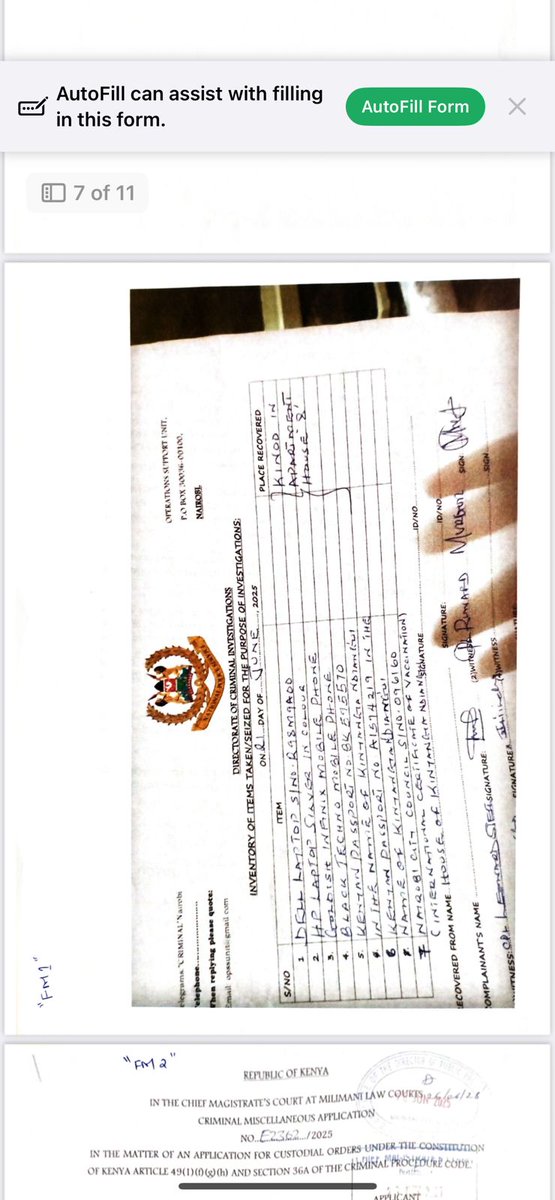 AutoFill can assist with filling
in this form.
AutoFill Form
7 of 11
"FM1"
OPERATIONS SUPPORT UNIT,
P.O BOX 30036-00100,
NAIROBI
elegrams "CRIMINAL" Nairobi
elephone
When replying please quote:
Email opasunit@gmail.com
DIRECTORATE OF CRIMINAL INVESTIGATIONS
INVENTORY OF ITEMS TAKEN/SEIZED FOR THE PURPOSE OF INVESTIGATIONS:
ON 21 DAY OF JUNE 2025
S/NO ITEM PLACE RECOVERED
1 DELL LAPTOP S/NO:
2 HP LAPTOP SILVER IN COLOUR
3. GOLDISH INFINIX MOBILE PHONE
4. BLACK TECHNO MOBILE PHONE
5. KENYAN PASSPORT NO BK
IN THE NAME OF KINYANGIA NDIANGUI
6 KENYAN PASSPORT NO A1594219 IN THE
NAME OF KINYANGIA NDIANGUI
7 NAIROBI CITY COUNCIL S/NO: 096160
(INTERNATIONAL CERTIFICATE OF VACCINATION)
KINOO IN
APARTMENT
HOUSE 8,
ECOVERED FROM NAME HOUSE OF KINYANGIA NDIANGUI SIGNATURE ID/NO
OMPLAINANT'S NAME SIGNATURE: ID/NO
SIGNATURE: (2) WITNESS SIGN
ITNESS: CPL LEONARD SIGNATURE WITNESS: SIGN
"FM2"
REPUBLIC OF KENYA
IN THE CHIEF MAGISTRATE'S COURT AT MILIMANI LAW COURTS
CRIMINAL MISCELLANEOUS APPLICATION
NO. E2362 /2025
IN THE MATTER OF AN APPLICATION FOR CUSTODIAL ORDERS UNDER THE CONSTITUTION
OF KENYA ARTICLE 49(1)(f)(g)(h) AND SECTION 36A OF THE CRIMINAL PROCEDURE CODE.
APPLICANT